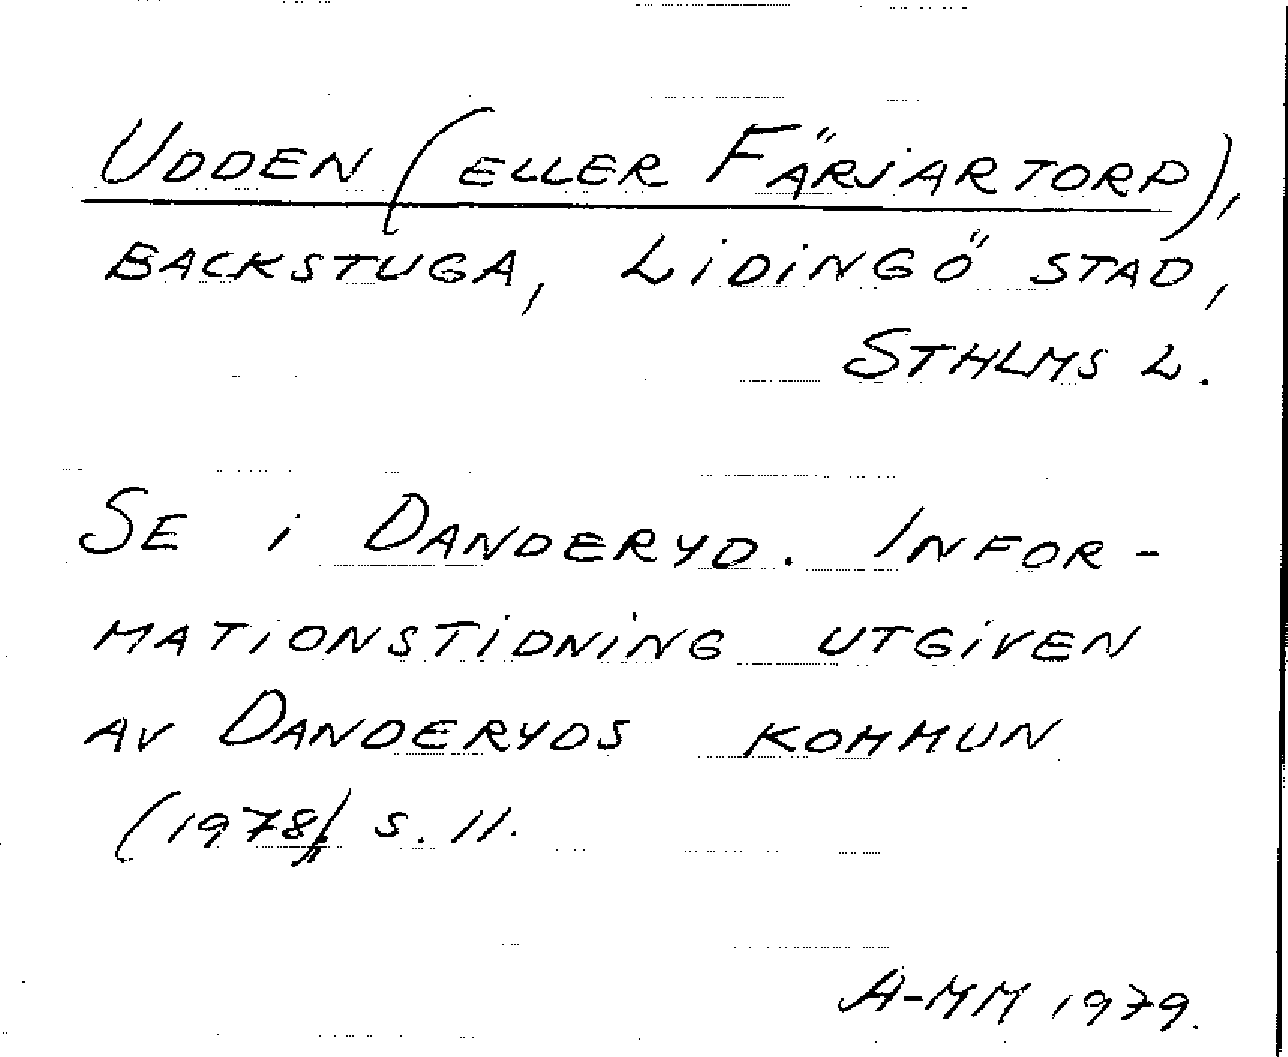 UDDEN (ELLER FÄRJARTORP),
BACKSTUGA, LIDINGÖ STAD,
STHLMS L.
SE I DANDERYD. INFOR-
MATIONSTIDNING UTGIVEN
AV DANDERYDS KOMMUN
(1978) S. 11.
A-MM 1979.